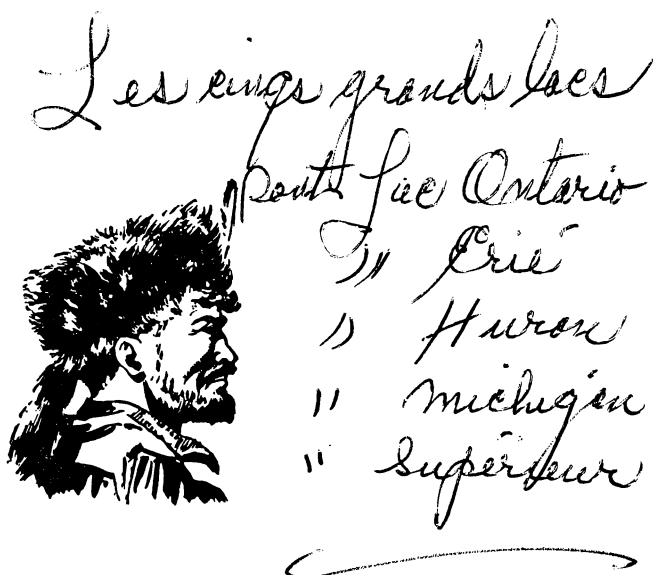 Les cinqs grands lacs
sont Lac Ontario
" Erié
" Huron
" Michigan
" Supérieur